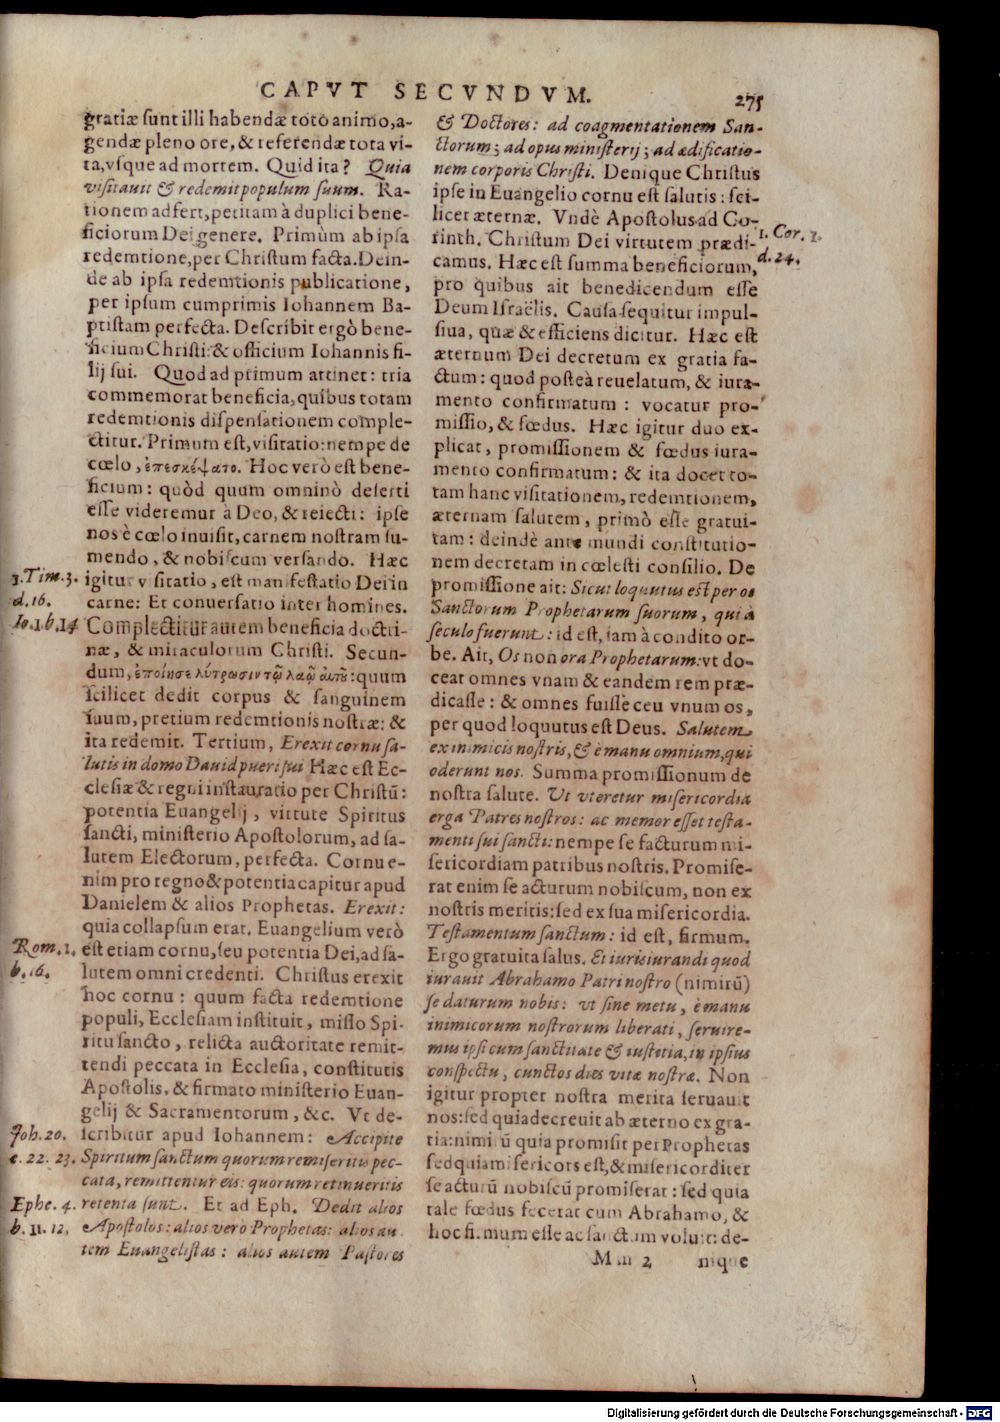 CAPVT SECVNDVM.
275
gratiæ sunt illi habendæ toto animo, a-
gendæ pleno ore, & referendæ tota vi-
ta, vsque ad mortem. Quid ita? Quia
visitauit & redemit populum suum. Ra-
tionem adfert, petitam à duplici bene-
ficiorum Dei genere. Primùm ab ipsa
redemtione, per Christum facta. Dein-
de ab ipsa redemtionis publicatione,
per ipsum cumprimis Iohannem Ba-
ptistam perfecta. Describit ergò bene-
ficium Christi: & officium Iohannis fi-
lij sui. Quod ad primum attinet: tria
commemorat beneficia, quibus totam
redemtionis dispensationem comple-
ctitur. Primum est, visitatio: nempe de
cœlo, ἐπεσκέψατο. Hoc verò est bene-
ficium: quòd quum omninò deserti
esse videremur à Deo, & reiecti: ipse
nos è cœlo inuisit, carnem nostram su-
mendo, & nobiscum versando. Hæc
igitur visitatio, est manifestatio Dei in
carne: Et conuersatio inter homines.
Complectitur autem beneficia doctri-
næ, & miraculorum Christi. Secun-
dum, ἐποίησε λύτρωσιν τῷ λαῷ αὐτοῦ: quum
scilicet dedit corpus & sanguinem
suum, pretium redemtionis nostræ: &
ita redemit. Tertium, Erexit cornu sa-
lutis in domo Dauid pueri sui Hæc est Ec-
clesiæ & regni instauratio per Christū:
potentia Euangelij, virtute Spiritus
sancti, ministerio Apostolorum, ad sa-
lutem Electorum, perfecta. Cornu e-
nim pro regno & potentia capitur apud
Danielem & alios Prophetas. Erexit:
quia collapsum erat. Euangelium verò
est etiam cornu, seu potentia Dei, ad sa-
lutem omni credenti. Christus erexit
hoc cornu: quum facta redemtione
populi, Ecclesiam instituit, misso Spi-
ritu sancto, relicta auctoritate remit-
tendi peccata in Ecclesia, constitutis
Apostolis, & firmato ministerio Euan-
gelij & Sacramentorum, &c. Vt de-
scribitur apud Iohannem: Accipite
Spiritum sanctum quorum remiseritis pec-
cata, remittentur eis: quorum retinueritis
retenta sunt. Et ad Eph. Dedit alios
Apostolos: alios verò Prophetas: alios au-
tem Euangelistas: alios autem Pastores
1. Tim. 3.
d. 16.
Io. 1. b. 14
Rom. 1.
b. 16.
Joh. 20.
e. 22. 23.
Ephe. 4.
b. 11. 12.
& Doctores: ad coagmentationem San-
ctorum; ad opus ministerij; ad ædificatio-
nem corporis Christi. Denique Christus
ipse in Euangelio cornu est salutis: sci-
licet æternæ. Vndè Apostolus ad Co-
rinth. Christum Dei virtutem prædi-
camus. Hæc est summa beneficiorum,
pro quibus ait benedicendum esse
Deum Israëlis. Causa sequitur impul-
siua, quæ & efficiens dicitur. Hæc est
æternum Dei decretum ex gratia fa-
ctum: quod posteà reuelatum, & iura-
mento confirmatum: vocatur pro-
missio, & fœdus. Hæc igitur duo ex-
plicat, promissionem & fœdus iura-
mento confirmatum: & ita docet to-
tam hanc visitationem, redemtionem,
æternam salutem, primò esse gratui-
tam: deindè ante mundi constitutio-
nem decretam in cœlesti consilio. De
promissione ait: Sicut loquutus est per os
Sanctorum Prophetarum suorum, qui à
seculo fuerunt: id est, iam à condito or-
be. Ait, Os non ora Prophetarum: vt do-
ceat omnes vnam & eandem rem præ-
dicasse: & omnes fuisse ceu vnum os,
per quod loquutus est Deus. Salutem
ex inimicis nostris, & è manu omnium, qui
oderunt nos. Summa promissionum de
nostra salute. Vt vteretur misericordia
erga Patres nostros: ac memor esset testa-
menti sui sancti: nempe se facturum mi-
sericordiam patribus nostris. Promise-
rat enim se acturum nobiscum, non ex
nostris meritis: sed ex sua misericordia.
Testamentum sanctum: id est, firmum.
Ergo gratuita salus. Et iurisiurandi quod
iurauit Abrahamo Patri nostro (nimirū)
se daturum nobis: vt sine metu, è manu
inimicorum nostrorum liberati, seruire-
mus ipsi cum sanctitate & iustitia, in ipsius
conspectu, cunctos dies vitæ nostræ. Non
igitur propter nostra merita seruauit
nos: sed quia decreuit ab æterno ex gra-
tia: nimirū quia promisit per Prophetas
sed quia misericors est, & misericorditer
se acturū nobiscū promiserat: sed quia
tale fœdus fecerat cum Abrahamo, &
hoc firmum esse ac sanctum voluit: de-
1. Cor. 1.
d. 24.
Mm 2 nique
Digitalisierung gefördert durch die Deutsche Forschungsgemeinschaft - DFG